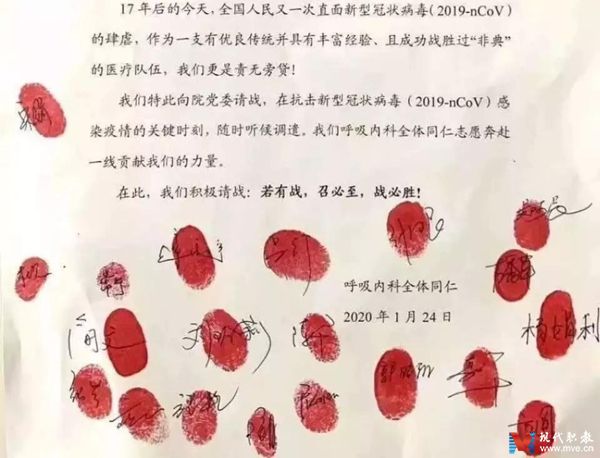 17 年后的今天，全国人民又一次直面新型冠状病毒(2019-nCoV)
的肆虐，作为一支有优良传统并具有丰富经验、且成功战胜过“非典”
的医疗队伍，我们更是责无旁贷！
我们特此向院党委请战，在抗击新型冠状病毒(2019-nCoV)感
染疫情的关键时刻，随时听候调遣。我们呼吸内科全体同仁志愿奔赴
一线贡献我们的力量。
在此，我们积极请战：若有战，召必至，战必胜！
呼吸内科全体同仁
2020 年 1 月 24 日
现代职教
www.mve.cn